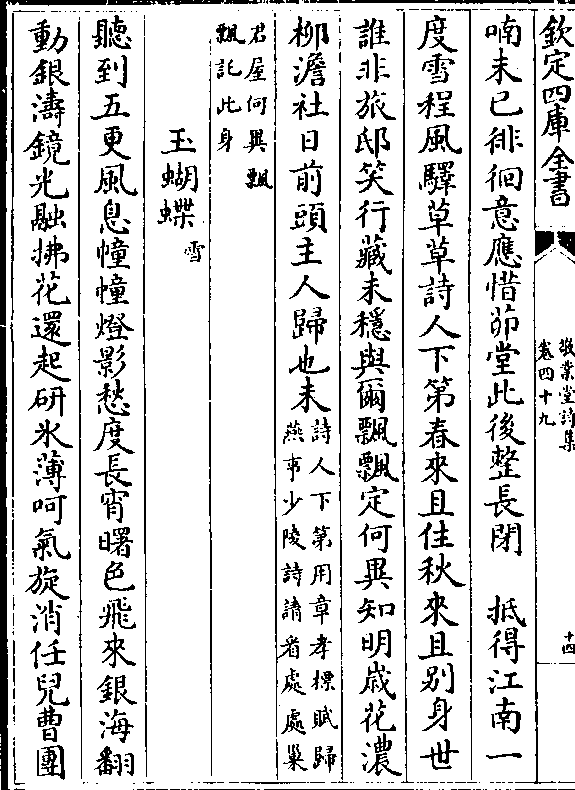 欽定四庫全書
敬業堂詩集
卷四十九
十四
喃未已徘徊意應惜茆堂此後整長閉　抵得江南一
度雪程風驛草草詩人下第春來且住秋來且别身世
誰非旅邸笑行藏未穩與爾飄飄定何異知明歲花濃
柳澹社日前頭主人歸也未
詩人下第用章孝標賦歸
燕事少陵詩請看處處巢
君屋何異飄
飄託此身
玉蝴蝶
雪
聽到五更風息幢幢燈影愁度長宵曙色飛來銀海翻
動銀濤鏡光融拂花還起硏氷薄呵氣旋消任兒曹團